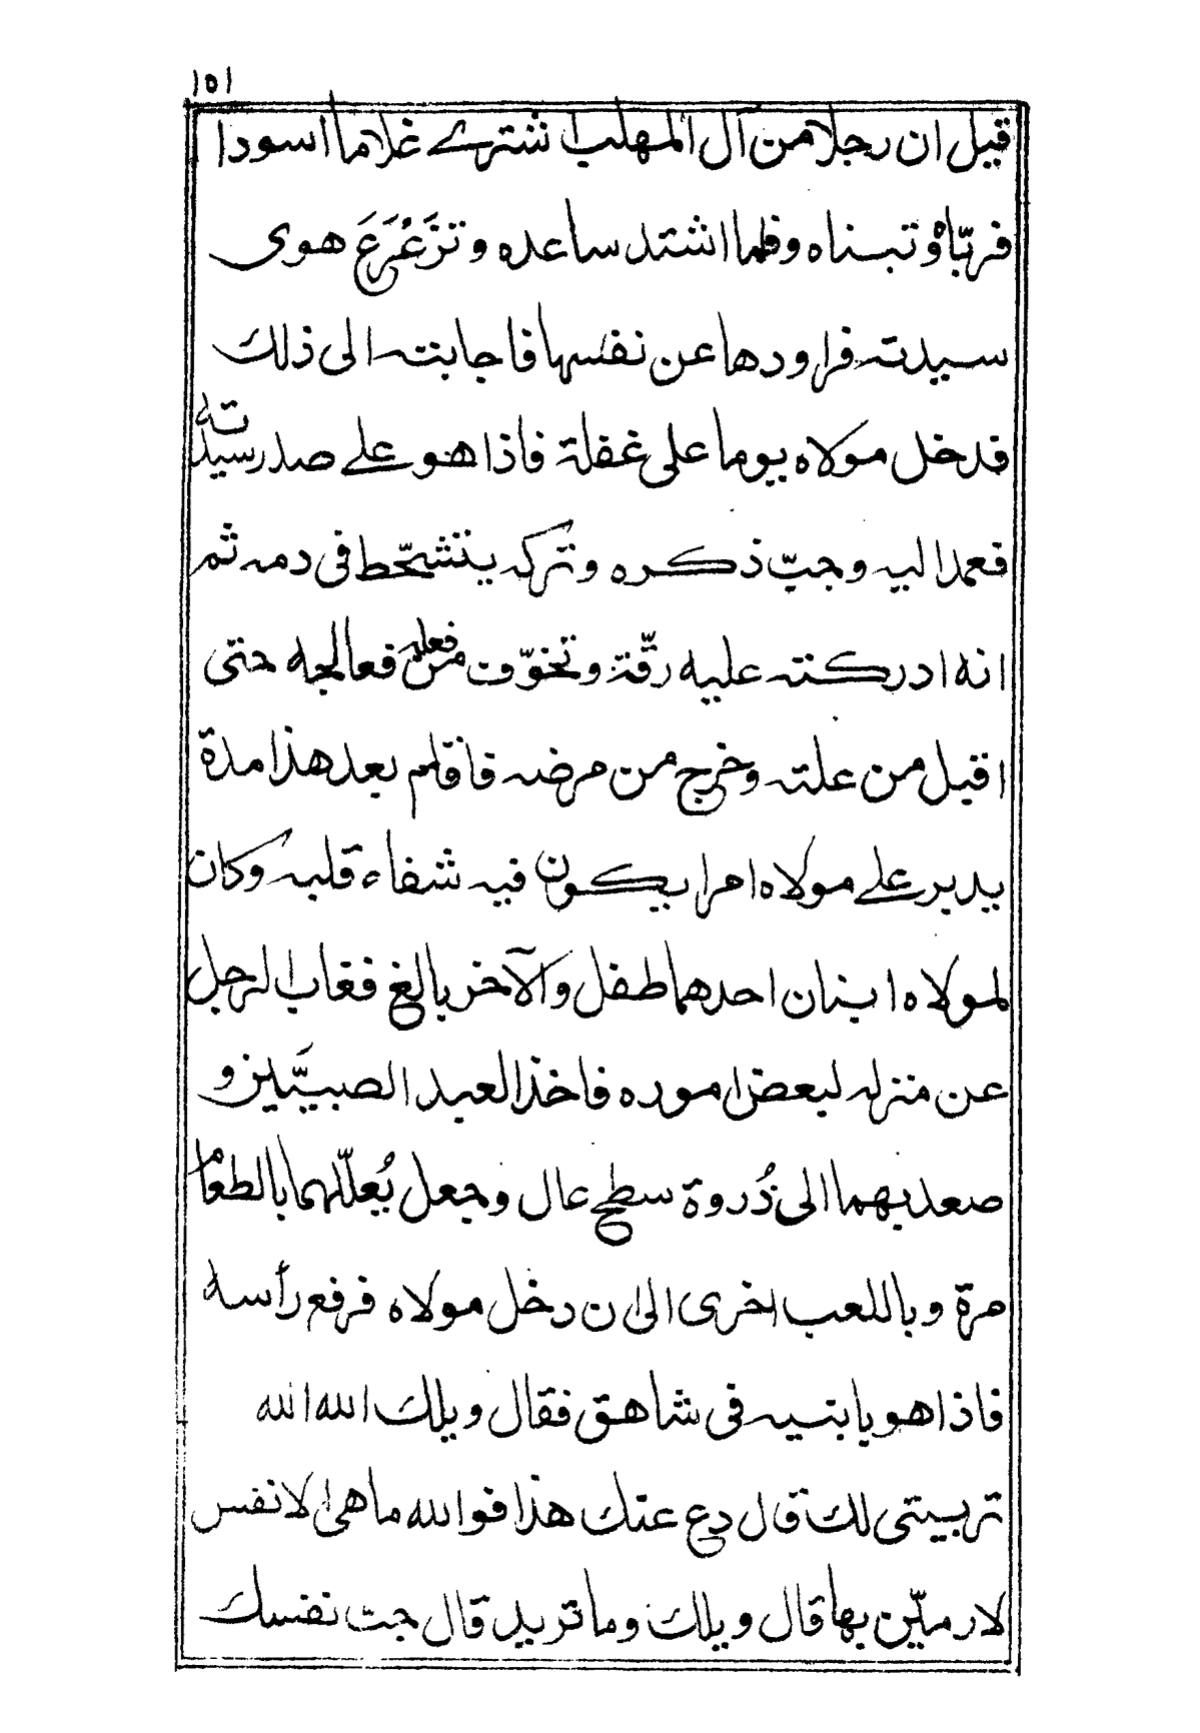 ١٥١
قيل ان رجلا من آل المهلب اشترے غلاما اسودا
فربّاه وتبناه وفلما اشتد ساعده وتَزَعْرَعَ هوى
سيدته فراودها عن نفسها فاجابته الى ذلك
فدخل مولاه يوما على غفلة فاذا هو علے صدر سيدته
فعمد اليه وجبّ ذكره وتركه يتشحّط في دمه ثم
انه ادركته عليه رقّة وتخوّف من فعله فعالجه حتى
اقبل من علته وخرج من مرضه فاقام بعد هذا مدة
يدبر علے مولاه امرا يكون فيه شفاء قلبه وكان
لمولاه ابنان احدهما طفل والآخر بالغ فغاب الرجل
عن منزله لبعض اموره فاخذ العبد الصبيَّين و
صعد بهما الى ذُروة سطح عال وجعل يُعلّلهما بالطعام
مرة وباللعب اخرى الى ان دخل مولاه فرفع رأسه
فاذا هو بابنيه في شاهق فقال ويلك الله الله
تربيتى لك قال دع عنك هذا فوالله ما هى الا نفس
لارميّن بها قال ويلك وما تريد قال جب نفسك